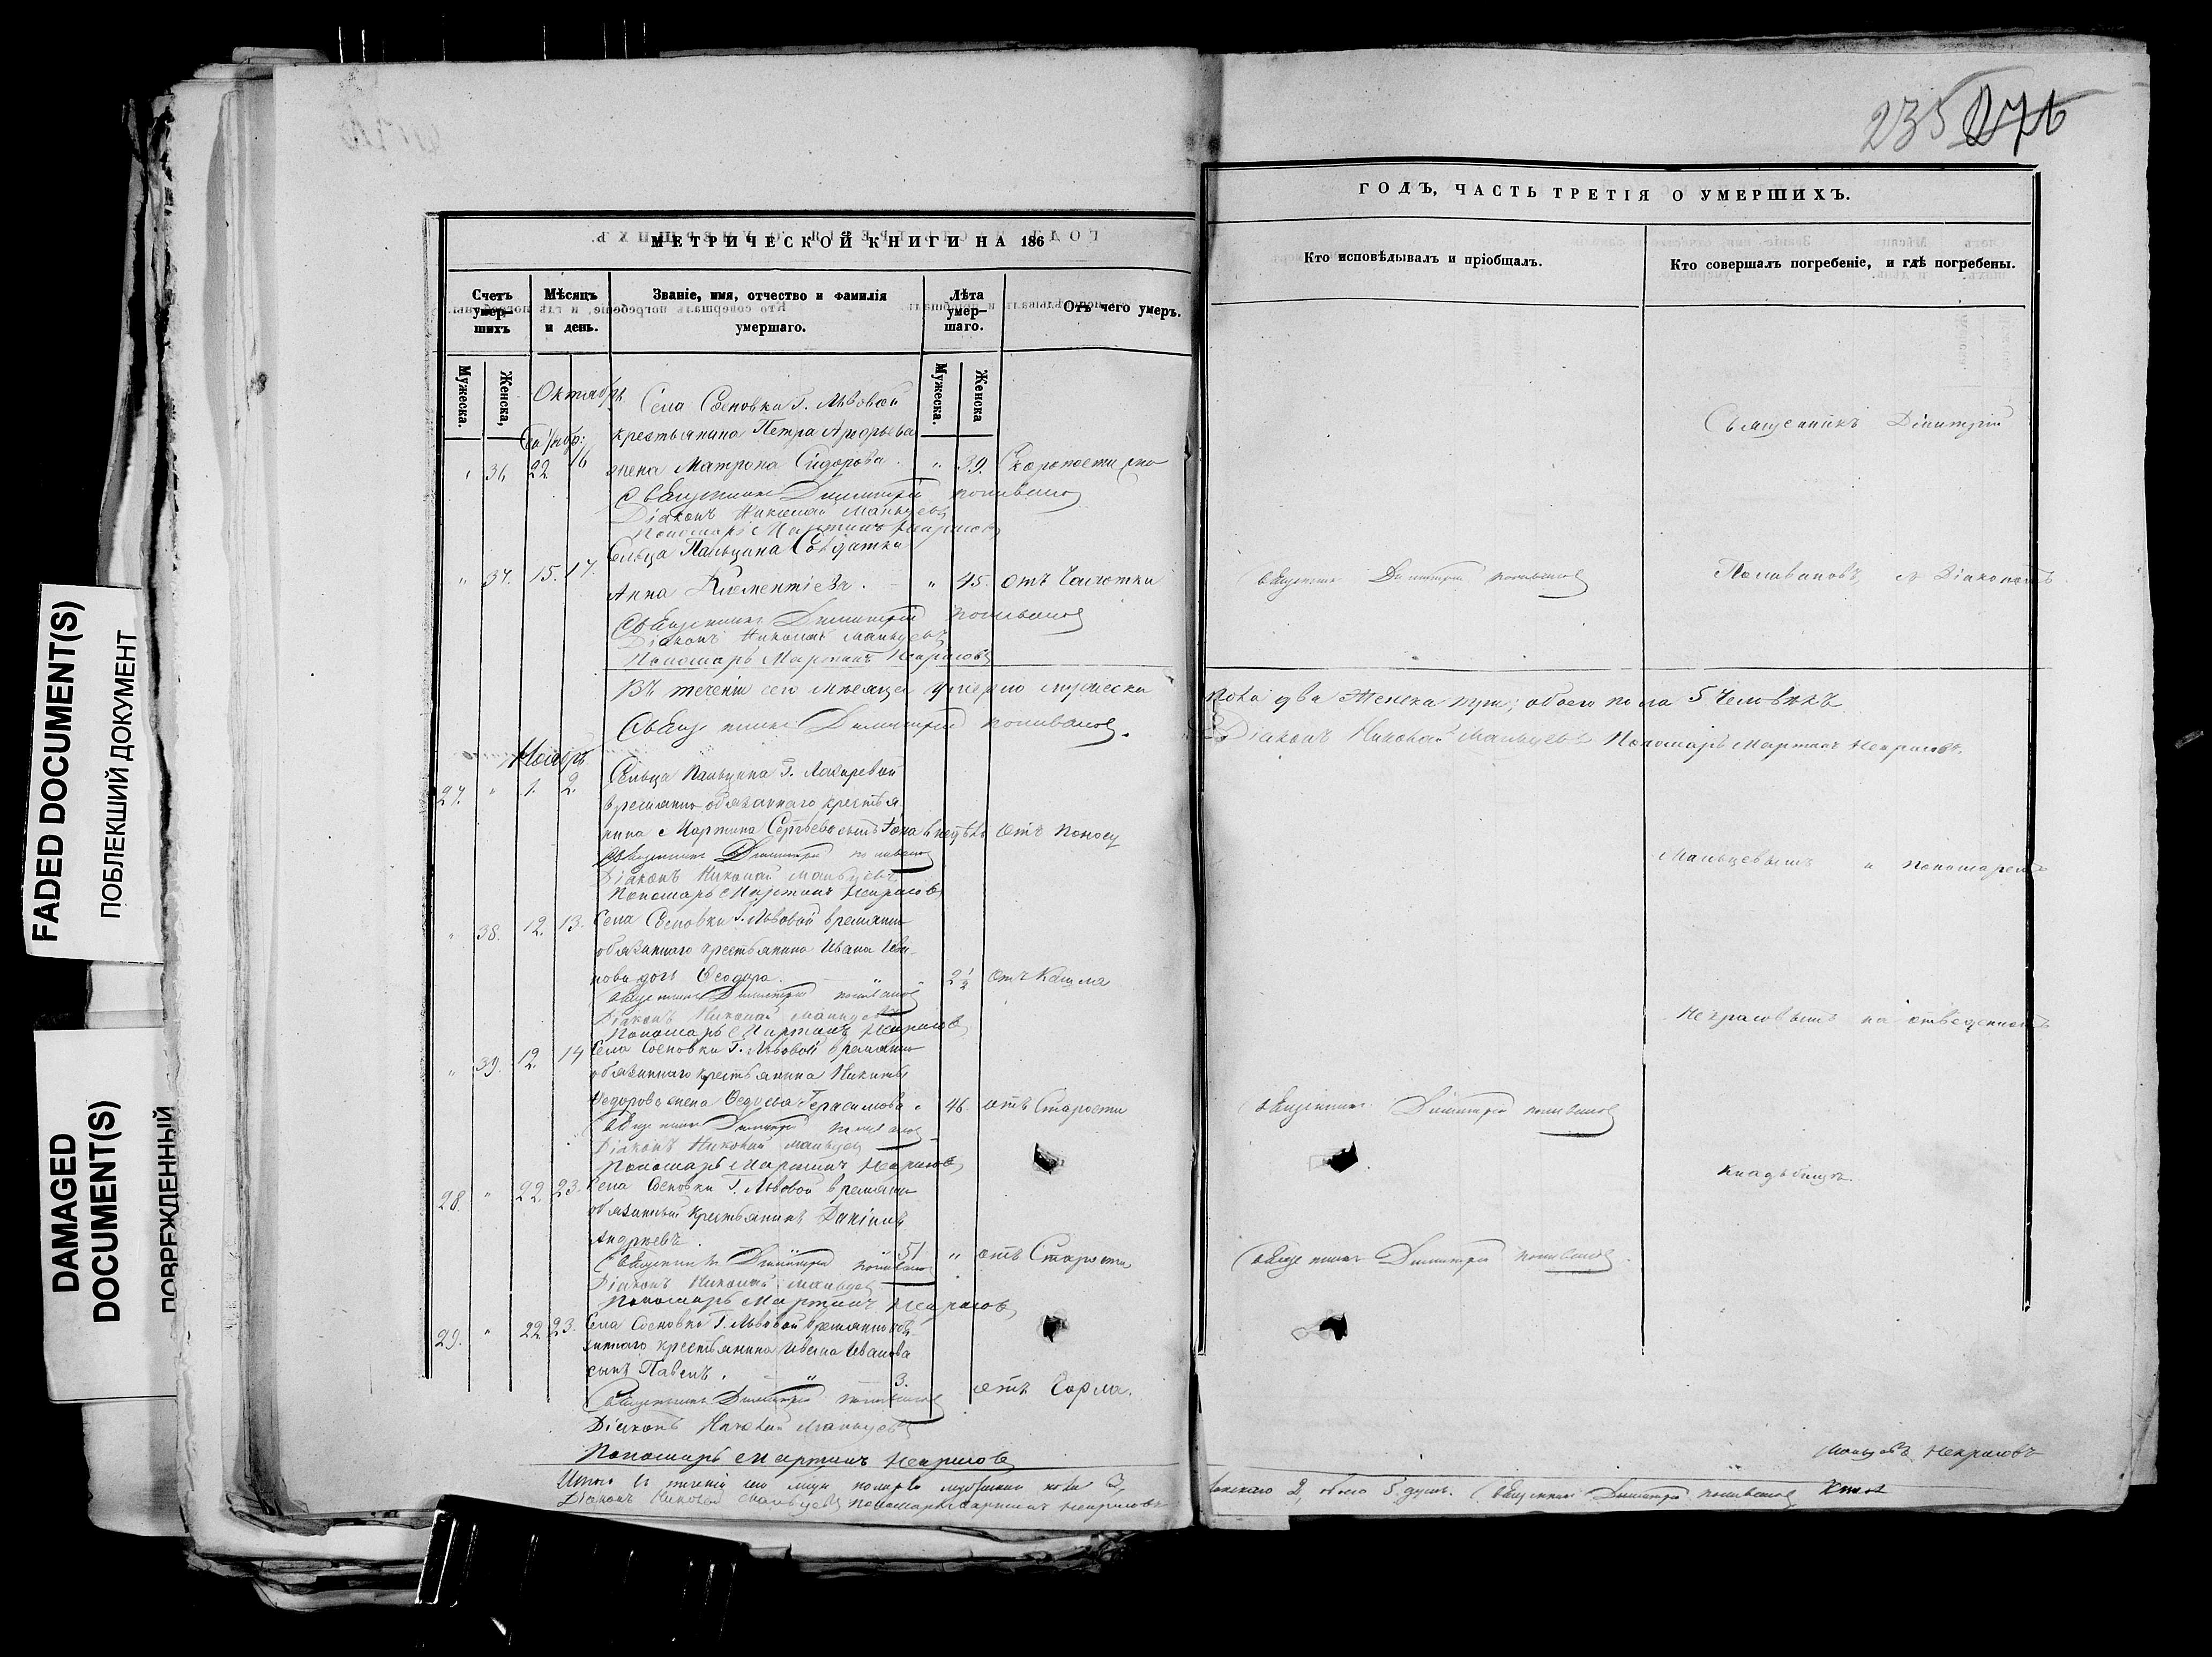 FADED DOCUMENT(S)
ПОБЛЕКШИЙ ДОКУМЕНТ
DAMAGED
DOCUMENT(S)
ПОВРЕЖДЕННЫЙ
МЕТРИЧЕСКОЙ КНИГИ НА 186
Счетъ умер-шихъ
Мѣсяцъ и день.
Званіе, имя, отчество и фамилія умершаго.
Лѣта умер-шаго.
Отъ чего умеръ.
Мужеска.
Женска,
Мужеска.
Женска
Октябрь
Села Сосновки Г. Львовой
крестьянина Петра
" 36. 22. жена Матрона Сидорова. " 39. Скоропостижно
Священникъ Димитрій Поливановъ
Діаконъ Николай Мальцевъ
Пономарь Мартинъ Некрасовъ
Сельца Пальцина Солдатка
" 37. 15. 17. Анна Климентіева. " 45. отъ Чахотки
Священникъ Димитрій Поливановъ
Діаконъ Николай Мальцевъ
Пономарь Мартинъ Некрасовъ
Въ теченіи сего мѣсяца умерло мужеска
Священникъ Димитрій Поливановъ.
Ноябрь
27. " 1. 2. Сельца Пальцина Г.
временно обязаннаго крестья
нина Мартина Сергѣева сынъ отъ Поносу
Священникъ Димитрій Поливановъ
Діаконъ Николай Мальцевъ
Пономарь Мартинъ Некрасовъ
" 38. 12. 13. Села Сосновки Г. Львовой временно
обязаннаго крестьянина Ивана Ива-
нова дочь Ѳеодора. " 2½ отъ Кашля
Священникъ Димитрій Поливановъ
Діаконъ Николай Мальцевъ
Пономарь Мартинъ Некрасовъ
" 39. 12. 14 Села Сосновки Г. Львовой временно
обязаннаго крестьянина Никиты
Ѳедорова жена Ѳедосья Герасимова " 46. отъ Старости
Священникъ Димитрій Поливановъ
Діаконъ Николай Мальцевъ
Пономарь Мартинъ Некрасовъ
28. " 22. 23. Села Сосновки Г. Львовой временно
обязанный крестьянинъ Даніилъ
Андреевъ. 51 " отъ Старости
Священникъ Димитрій Поливановъ
Діаконъ Николай Мальцевъ
Пономарь Мартинъ Некрасовъ
29. " 22 23. Села Сосновки Г. Львовой временно обя-
заннаго крестьянина Ивана Иванова
сынъ Павелъ. " 3. отъ Горла.
Священникъ Димитрій Поливановъ
Діаконъ Николай Мальцевъ
Пономарь Мартинъ Некрасовъ
Итого въ теченіи сего мѣсяца померло мужескаго пола 3,
Діаконъ Николай Мальцевъ Пономарь Мартинъ Некрасовъ
235 276
ГОДЪ, ЧАСТЬ ТРЕТІЯ О УМЕРШИХЪ.
Кто исповѣдывалъ и пріобщалъ.
Кто совершалъ погребеніе, и гдѣ погребены.
Священникъ Димитрій
Священникъ Димитрій Поливановъ
Поливановъ съ Діакономъ
пола два Женска три; обоего пола 5 Человѣкъ
Діаконъ Николай Мальцевъ Пономарь Мартинъ Некрасовъ.
Мальцевымъ и пономаремъ
Некрасовымъ на отведенномъ
Священникъ Димитрій Поливановъ
кладбищѣ.
Священникъ Димитрій Поливановъ.
Мальцовъ Некрасовъ
женскаго 2, обоего 5 душъ. Священникъ Димитрій Поливановъ